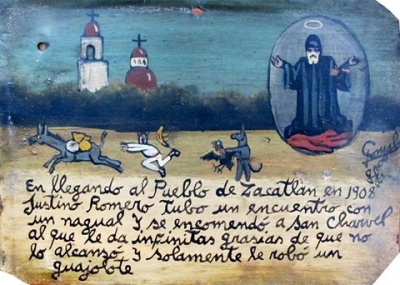 En llegando al Pueblo de Zacatlan en 1908
Justino Romero tubo un encuentro con
un nagual y se encomendó a san Charvel
al que le da infinitas grasias de que no
lo alcansó y solamente le robó un
guajolote